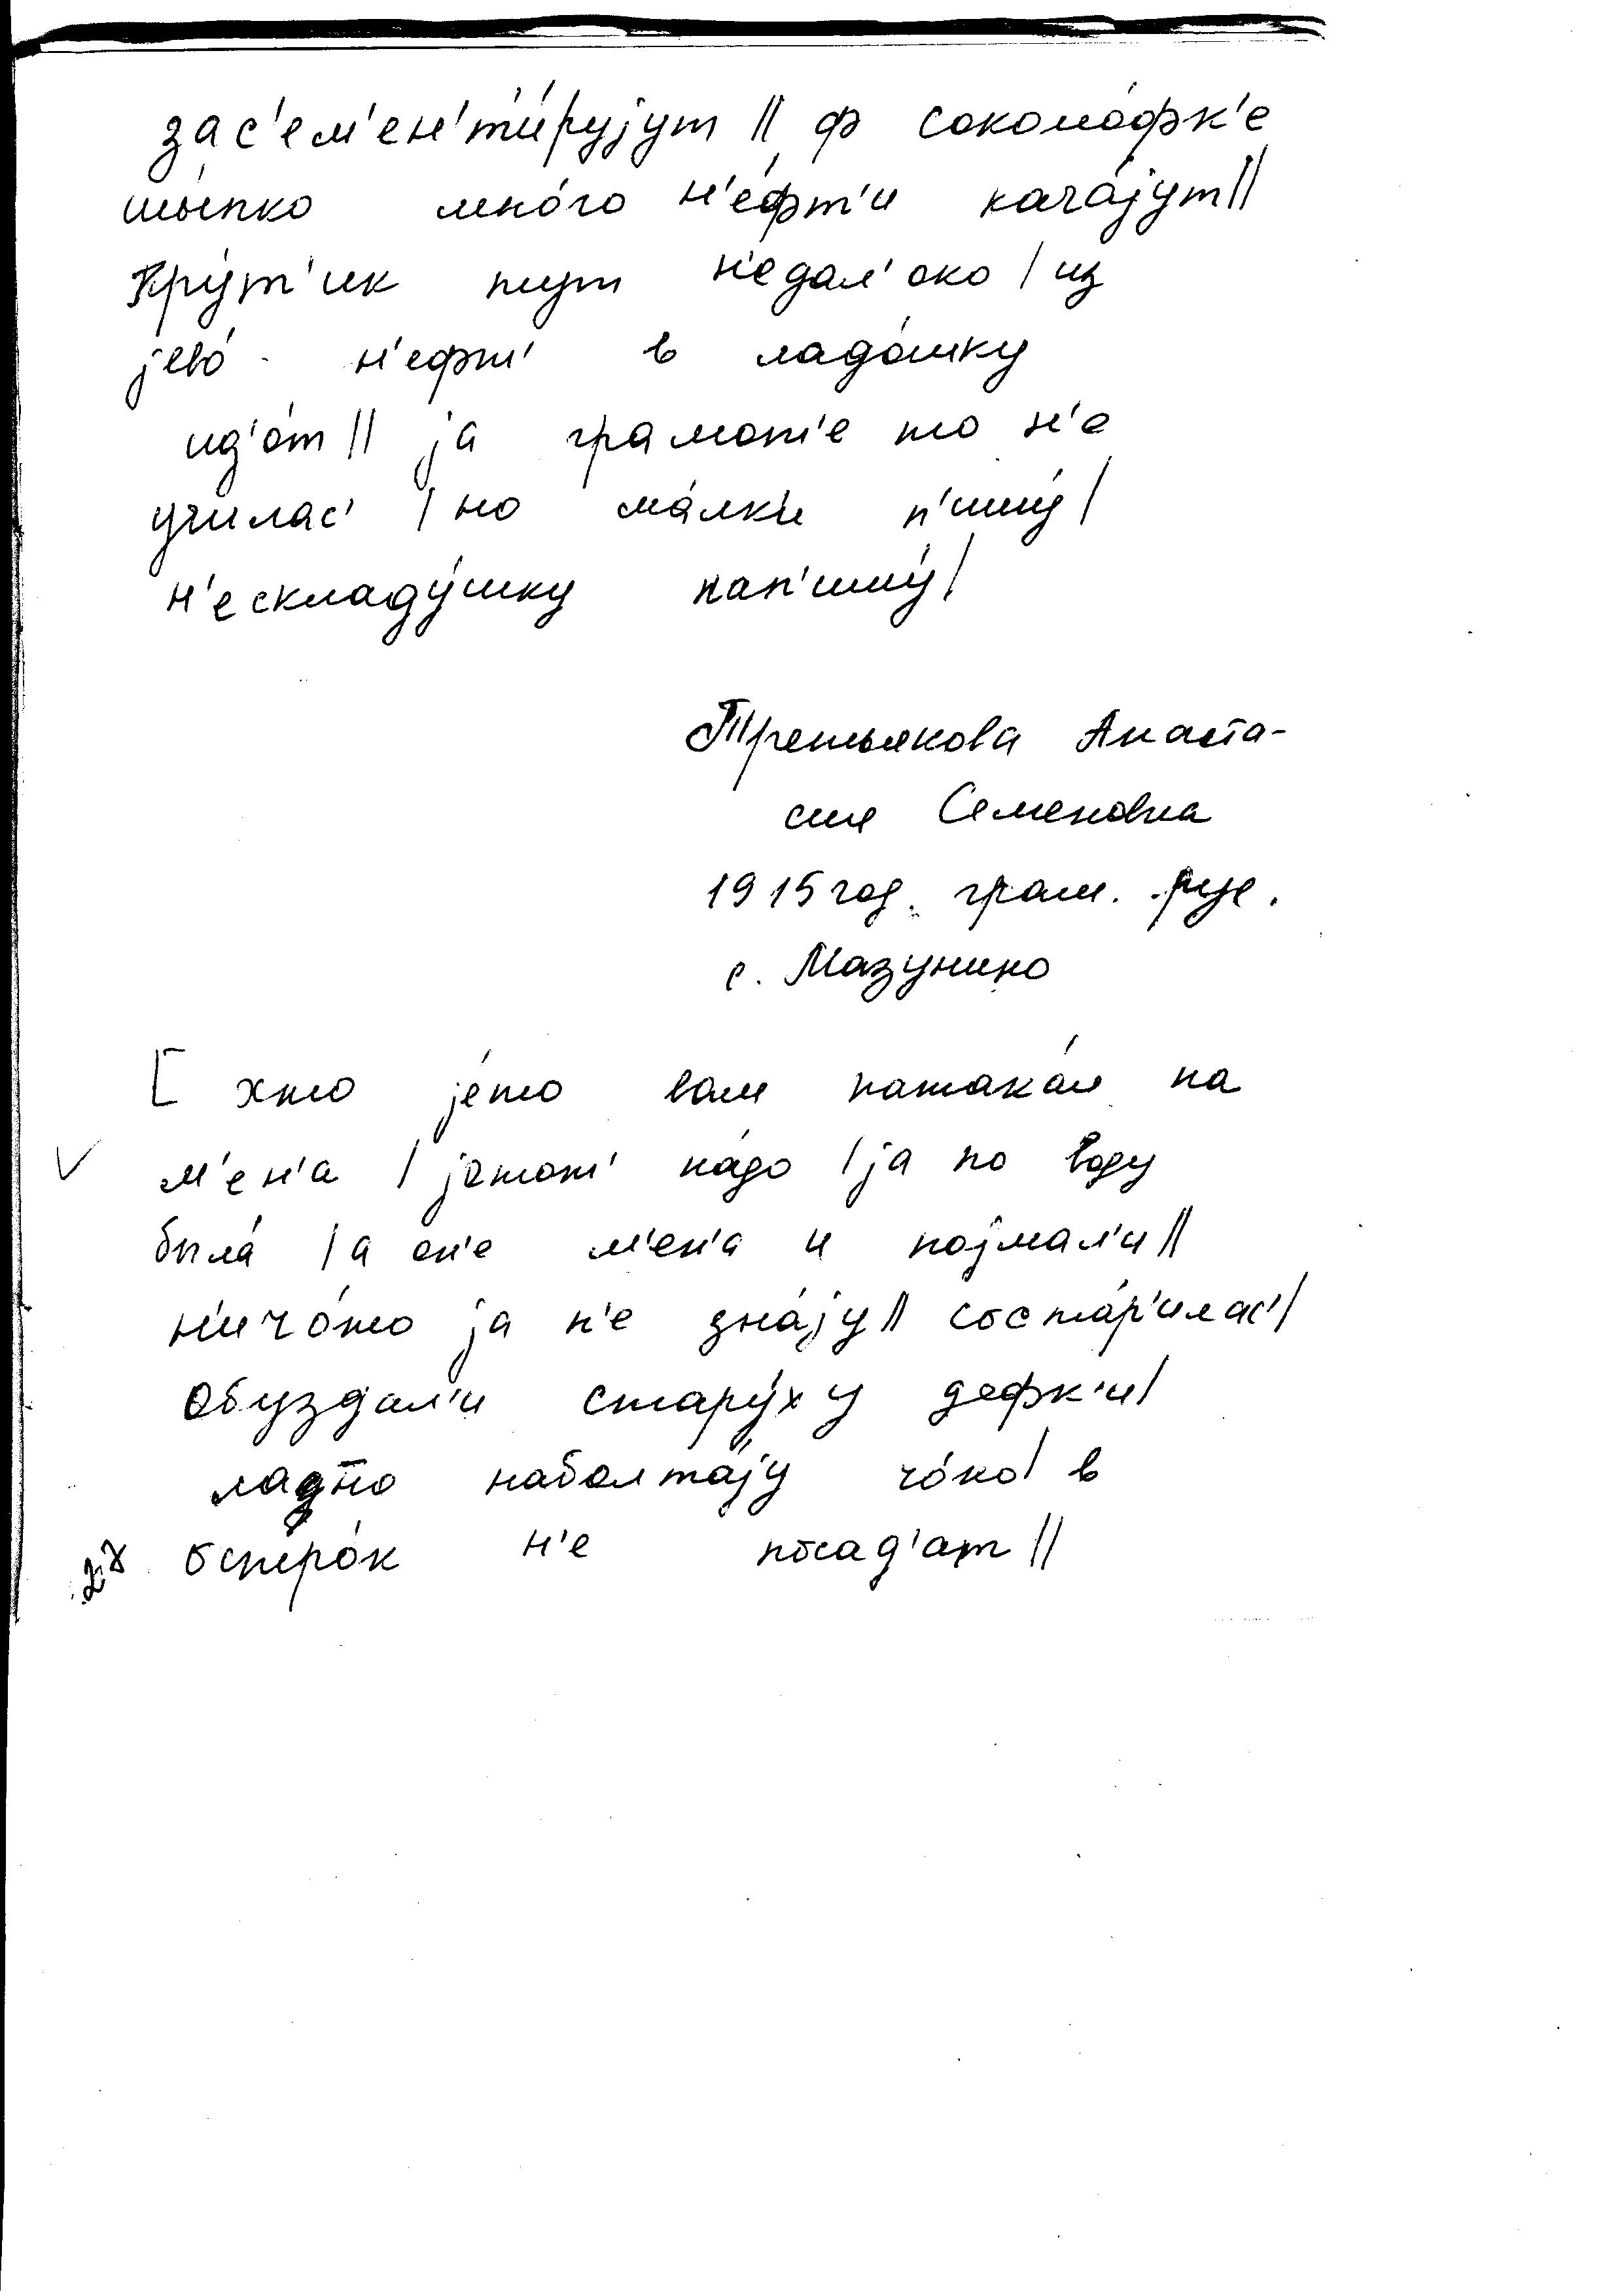 зас'ем'ен'ти́руjут || ф соколо́фк'е
шы́пко мно́го н'е́фт'и кача́jут ||
Кру́т'ик тут н'едал'око | из
jево́ н'ефт' в ладо́шку
ид'о́т || jа грамот'е то н'е
училас' | но ма́лк'и п'ишу́ |
н'ескладу́шку нап'ишу́ |
Третьякова Анаста-
сия Семеновна
1915 год. грам. рус.
с. Мазунино
[ хто jе́то вам натака́л на
м'ен'а | jетот' на́до | jа по воду
была́ | а он'е м'ен'а и поjмал'и ||
н'ичо́то jа н'е зна́jу || соста́р'илас' |
Обуздал'и стару́ху дефк'и |
ладно наболта́jу чо́ко | в
остро́к н'е посад'ат ||